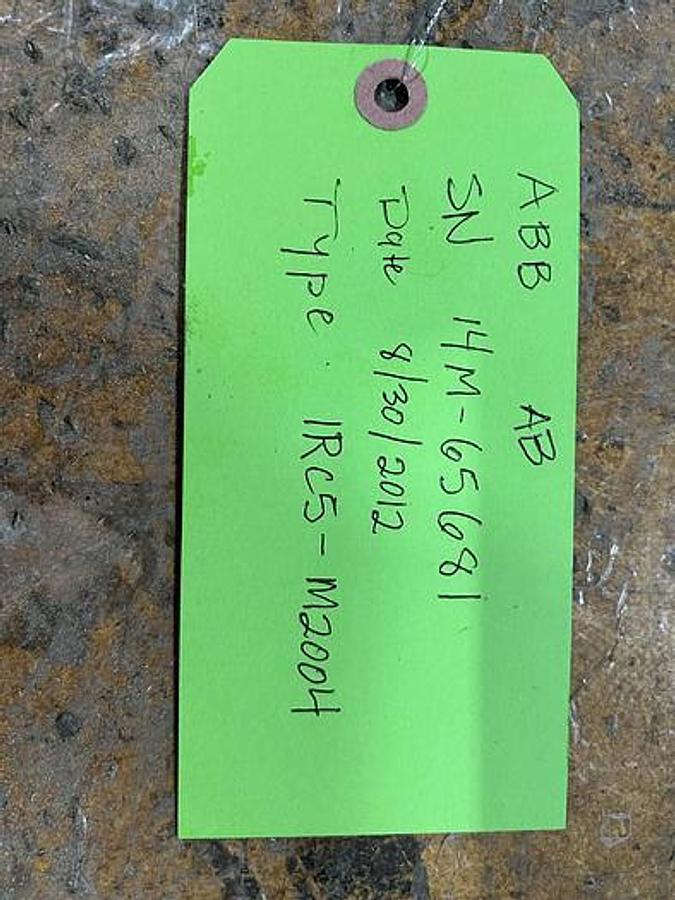 ABB AB
SN 14M-65681
Date 8/30/2012
Type. IRC5-M2004